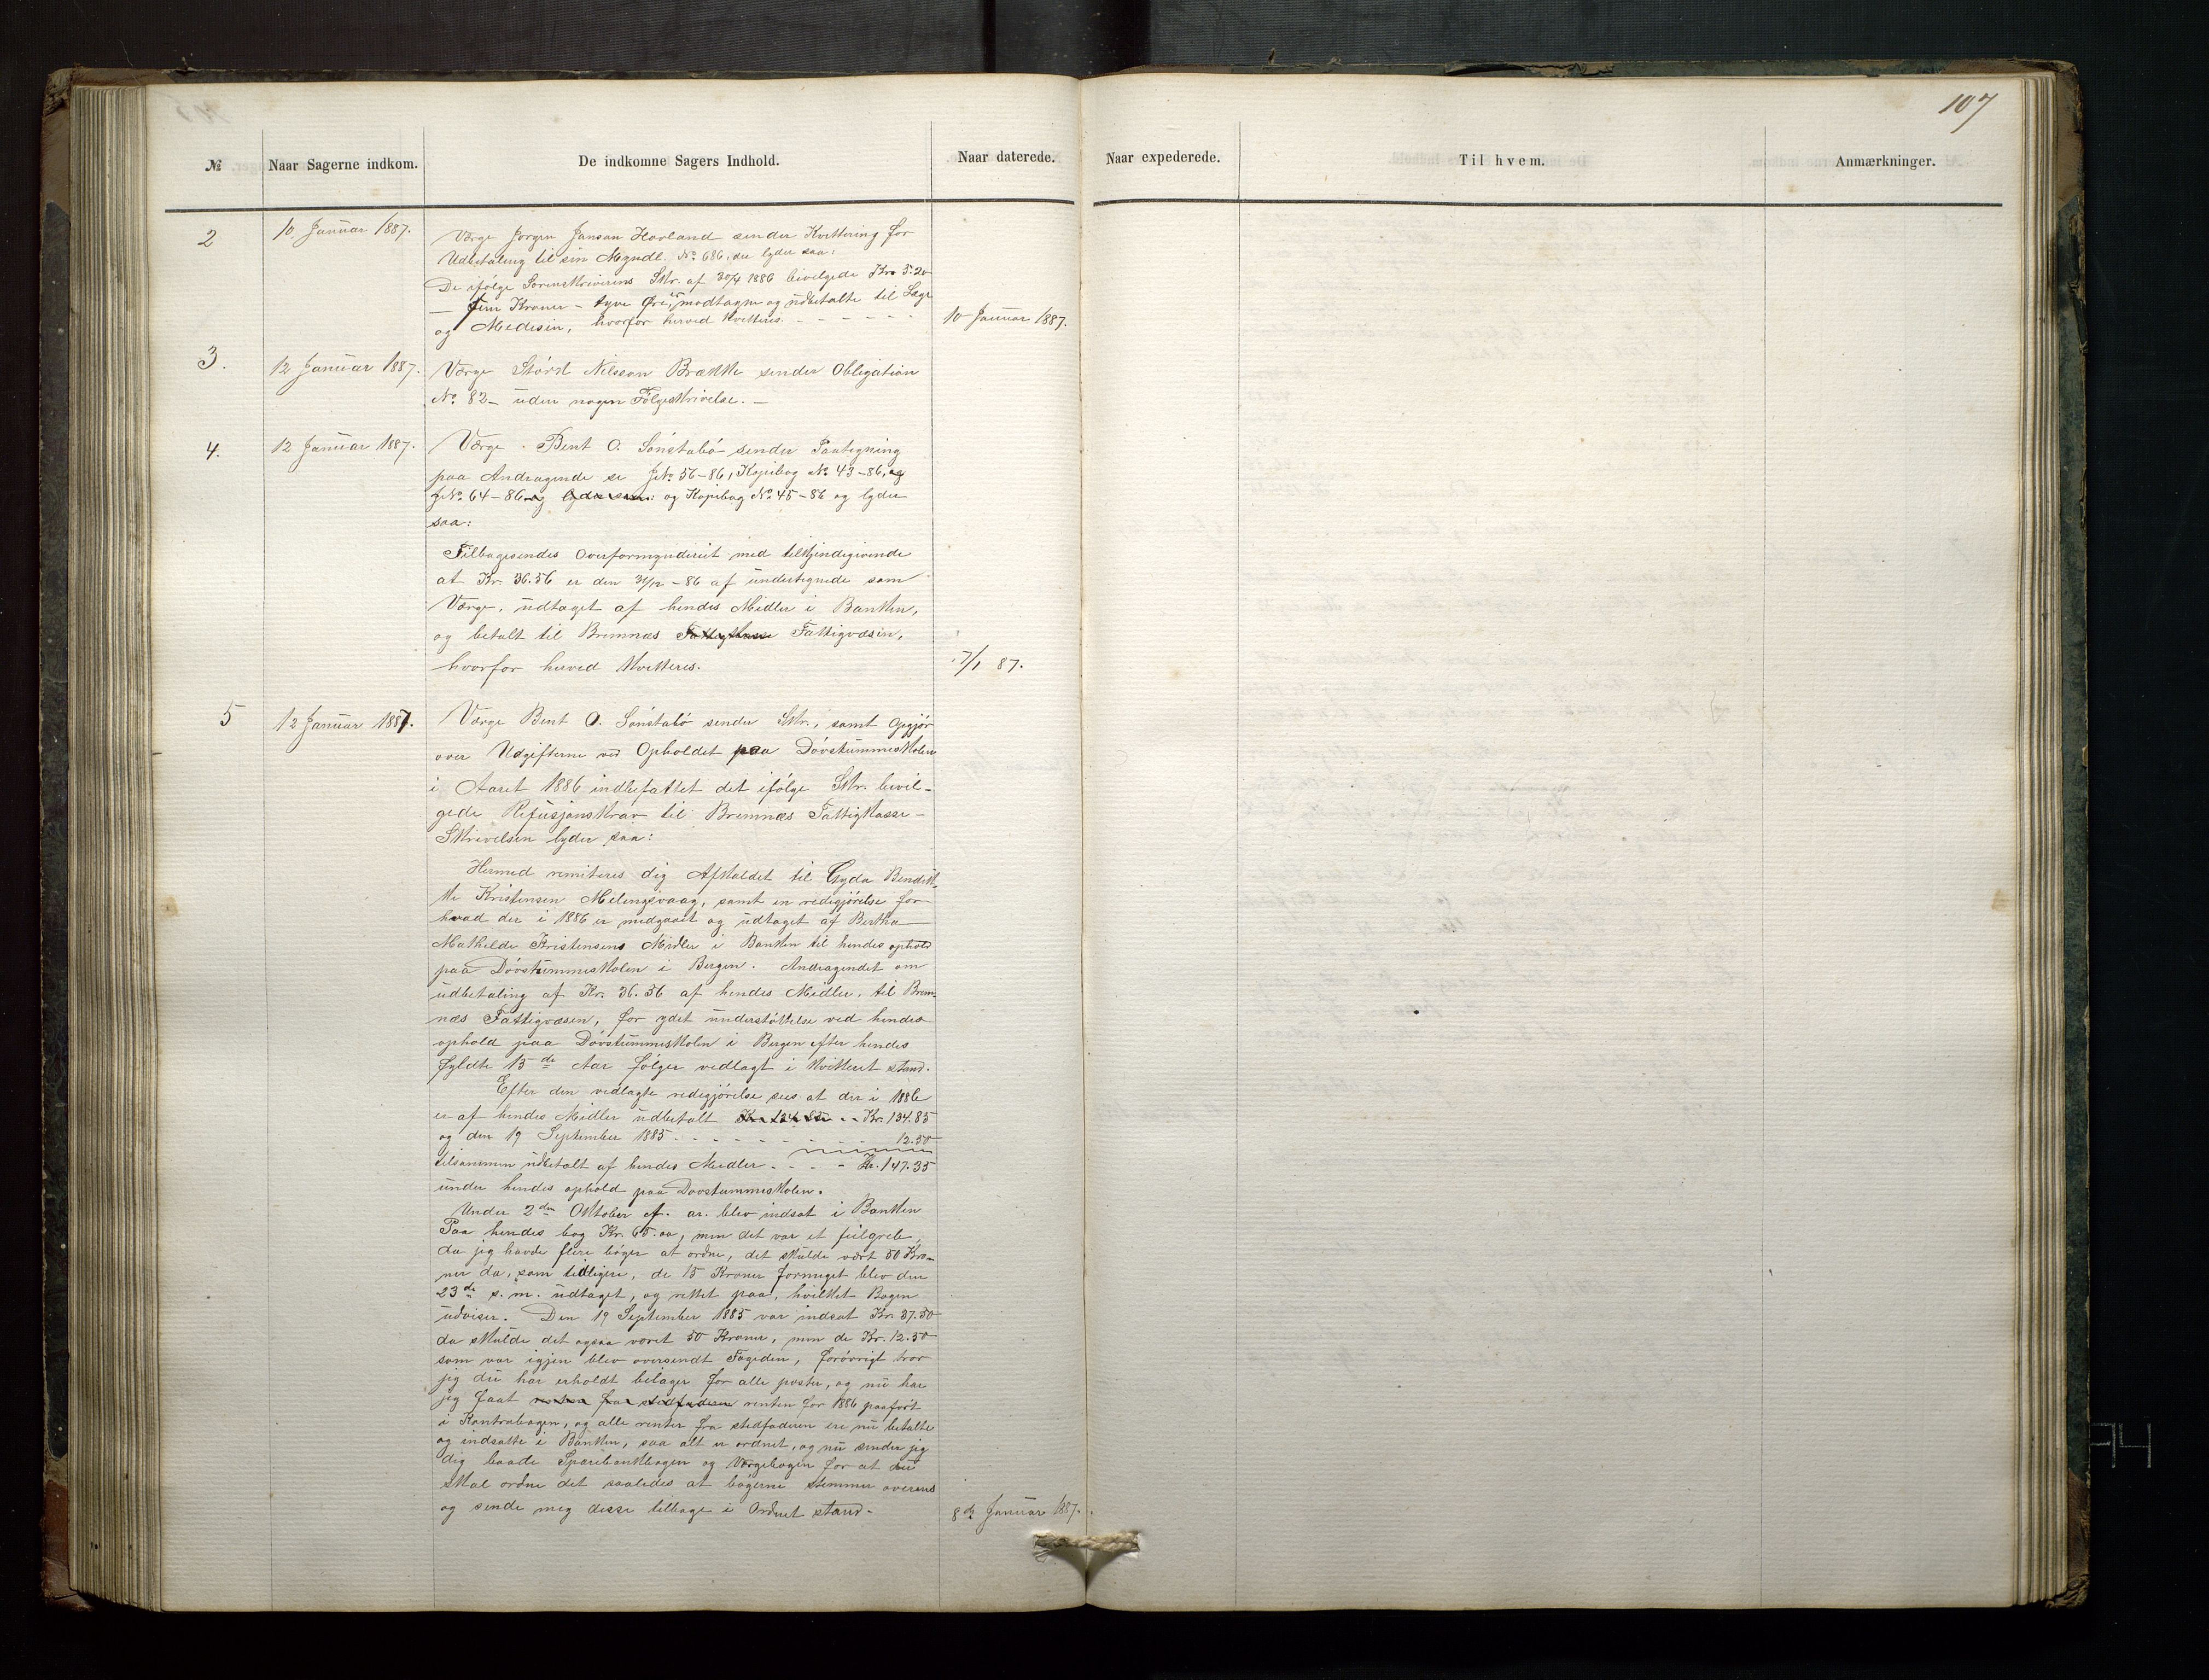 107
№ Naar Sagerne indkom. De indkomne Sagers Indhold. Naar daterede. Naar expederede. Til hvem. Anmærkninger.
2 10 Januar 1887. Værge Jørgen Jansan Hovland sender Kvittering for
Udbetaling til sin Myndl. No 686, der lyder saa:
De ifølge Sorenskriverens Skr. af 30/4 1886 bevilgede Kr. 5.20
— fem Kroner – tyve Øre, er modtagne og udbetalte til Læge
og Medisin, hvorfor herved kvitteres. 10 Januar 1887.
3. 12 Januar 1887. Værge Størd Nilssan Brække sender Obligation
No. 82 – uden nogen Følgeskrivelse. –
4. 12 Januar 1887. Værge Bent O. Sønstabø sender Paategning
paa Andragende se JNo. 56–86, Kopibog No 43–86, og
JNo. 64–86 og lyder saa: og Kopibog No. 45–86 og lyder
saa:
Tilbagesendes Overformynderiet med tilkjendegivende
at Kr. 36.56 er den 31/12 –86 af undertegnede som
Værge, udtaget af hendes Midler i Banken,
og betalt til Bremnæs Fattigkasse Fattigvæsin,
hvorfor herved kvitteres. 7/1 87.
5 12 Januar 1887. Værge Bent O. Sønstabø sender Skr., samt Opgjør
over Udgifterne ved Opholdet paa Døvstummeskolen
i Aaret 1886 indbefattet det ifølge Skr. bevil-
gede Refusjonskrav til Bremnæs Fattigkasse –
Skrivelsen lyder saa:
Hermed remiteres dig Afkaldet til Gyda Bendik-
ke Kristensen Melingsvaag, samt en redigjørelse for
hvad der i 1886 er medgaaet og udtaget af Bertha
Mathilde Kristensens Midler i Banken til hendes ophold
paa Døvstummeskolen i Bergen. Andragendet om
udbetaling af Kr. 36.56 af hendes Midler, til Brem-
næs Fattigvæsen, for ydet understøttelse ved hendes
ophold paa Døvstummeskolen i Bergen efter hendes
fyldte 15de Aar følger vedlagt i kvitteret stand.
Efter den vedlagte redigjørelse sees at der i 1886
er af hendes Midler udbetalt Kr. 134.85 -- Kr. 134.85
og den 19 September 1885 - - - - - - - 12.50
tilsammen udbetalt af hendes Midler - - - - Kr. 147.35
under hendes ophold paa Døvstummeskolen.
Under 2den Oktober f. ar. blev indsat i Banken
Paa hendes bog Kr. 65.00, men det var et feilgreb,
da jeg havde flere bøger at ordne, det skulde vært 50 Kro-
ner da, som tidligere, de 15 Kroner formeget blev den
23de s. m. udtaget, og rettet paa, hvilket Bogen
udviser. Den 19 September 1885 var indsat Kr. 37.50
da skulde det ogsaa været 50 Kroner, men de Kr. 12.50
som var igjen blev oversendt Fogeden, forøvrigt tror
jeg du har erholdt bilager for alle poster, og nu har
jeg faat renten fra stedfaderen renten for 1886 paaført
i Kontrabogen, og alle renter fra stedfaderen ere nu betalte
og indsatte i Banken, saa alt er ordnet, og nu sender jeg
dig baade Sparebankbogen og Værgebogen for at du
skal ordne det saaledes at bøgerne stemmer overens
og sende meg disse tilbage i Ordnet stand – 8de Januar 1887.